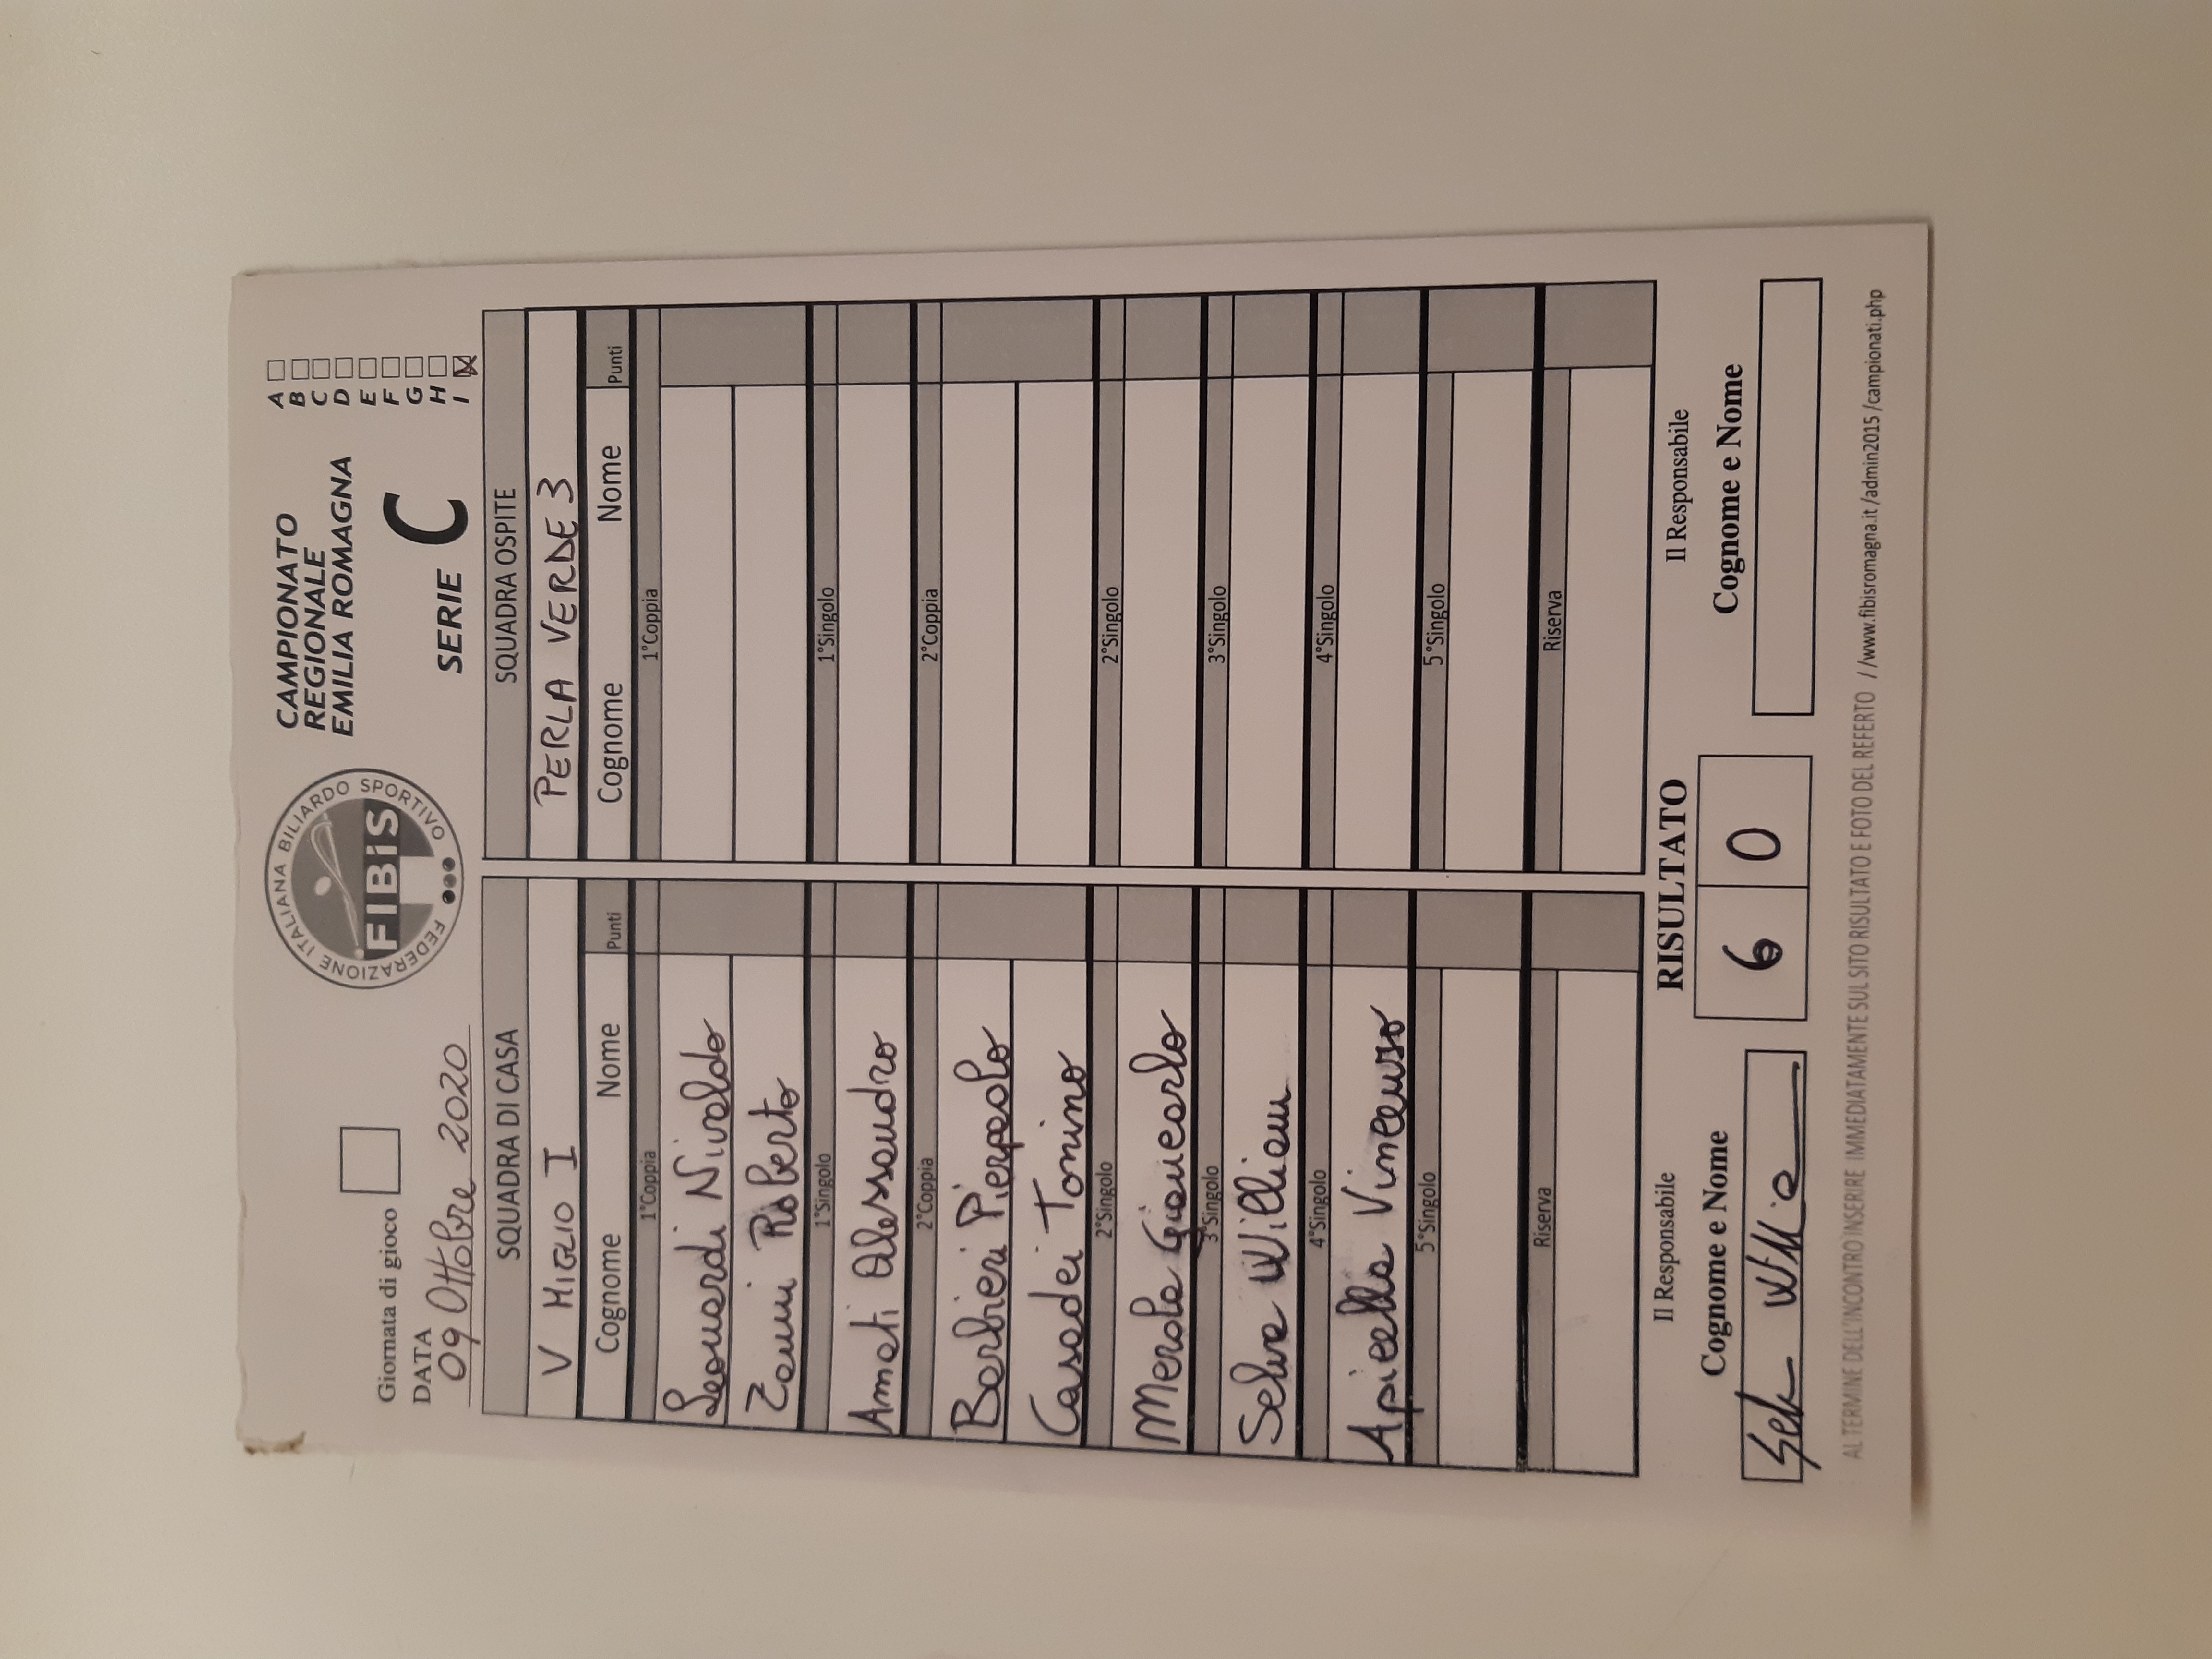 Giornata di gioco
DATA
09 Ottobre 2020
FEDERAZIONE ITALIANA BILIARDO SPORTIVO
FIBiS
CAMPIONATO
REGIONALE
EMILIA ROMAGNA
SERIE C
A
B
C
D
E
F
G
H
I
SQUADRA DI CASA
V MIGLIO I
Cognome Nome Punti
1°Coppia
Leonardi Nivaldo
Zanni Roberto
1°Singolo
Amati Alessandro
2°Coppia
Barbieri Pierpaolo
Casadei Tonino
2°Singolo
Merola Giancarlo
3°Singolo
Selva William
4°Singolo
Apicella Vincenzo
5°Singolo
Riserva
SQUADRA OSPITE
PERLA VERDE 3
Cognome Nome Punti
1°Coppia
1°Singolo
2°Coppia
2°Singolo
3°Singolo
4°Singolo
5°Singolo
Riserva
Il Responsabile
Cognome e Nome
RISULTATO
6 0
Il Responsabile
Cognome e Nome
AL TERMINE DELL'INCONTRO INSERIRE IMMEDIATAMENTE SUL SITO RISULTATO E FOTO DEL REFERTO //www.fibisromagna.it/admin2015/campionati.php